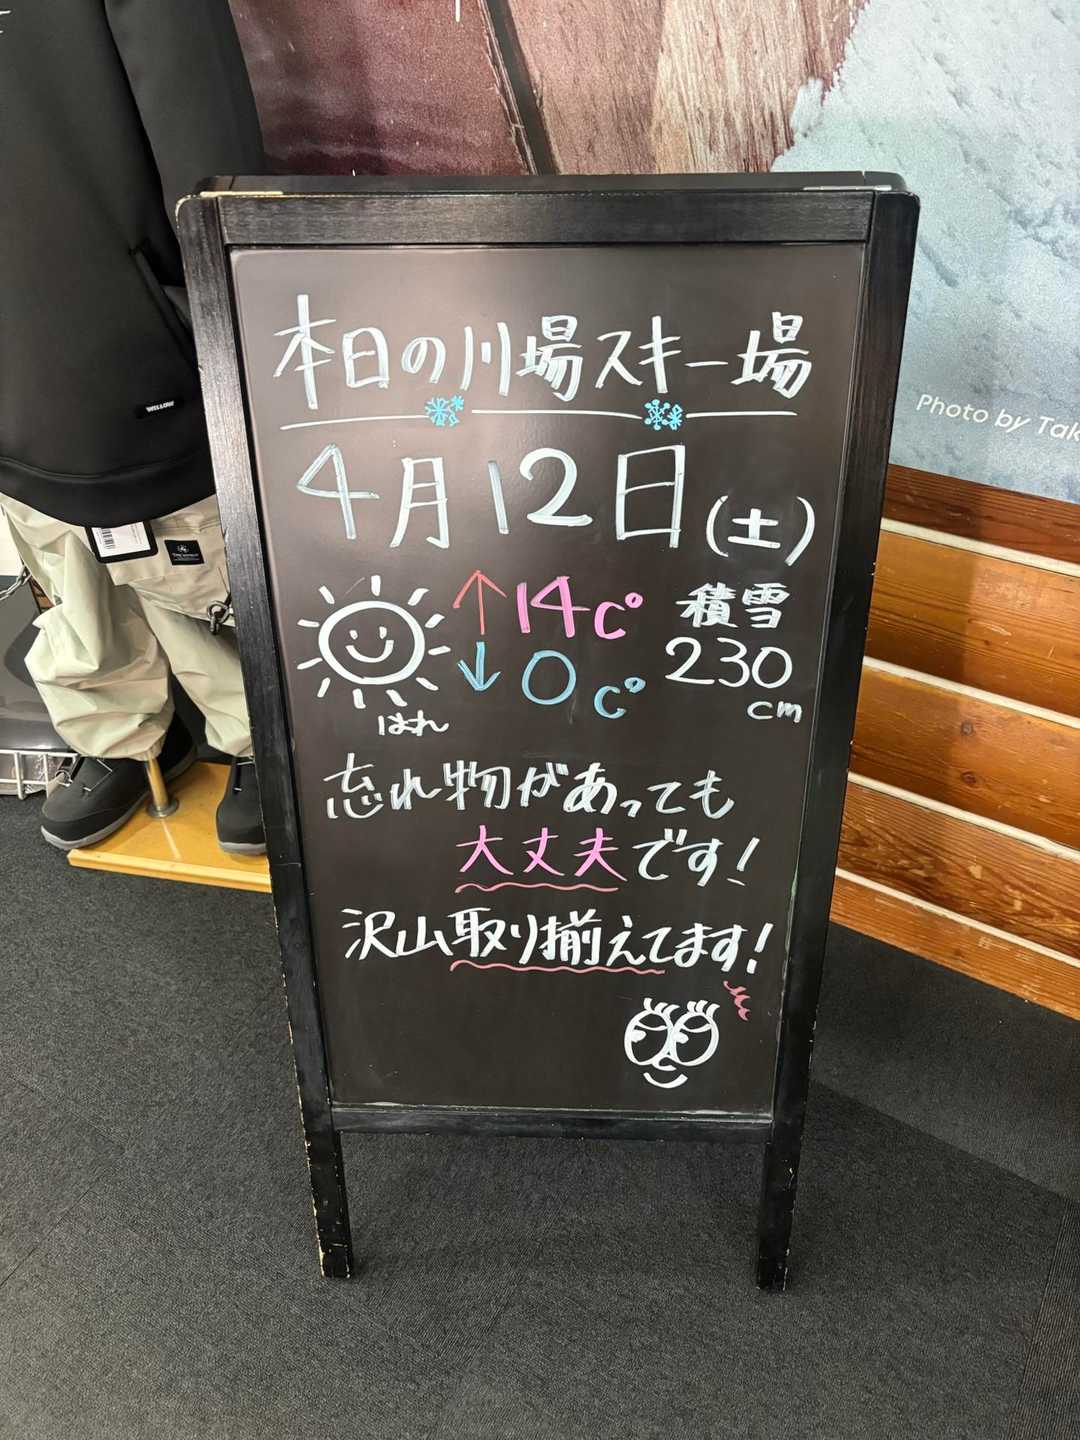 本日の川場スキー場
4月12日(土)
↑14c°
↓0c°
はれ
積雪
230
cm
忘れ物があっても
大丈夫です!
沢山取り揃えてます!
Photo by Tak
WILLOW